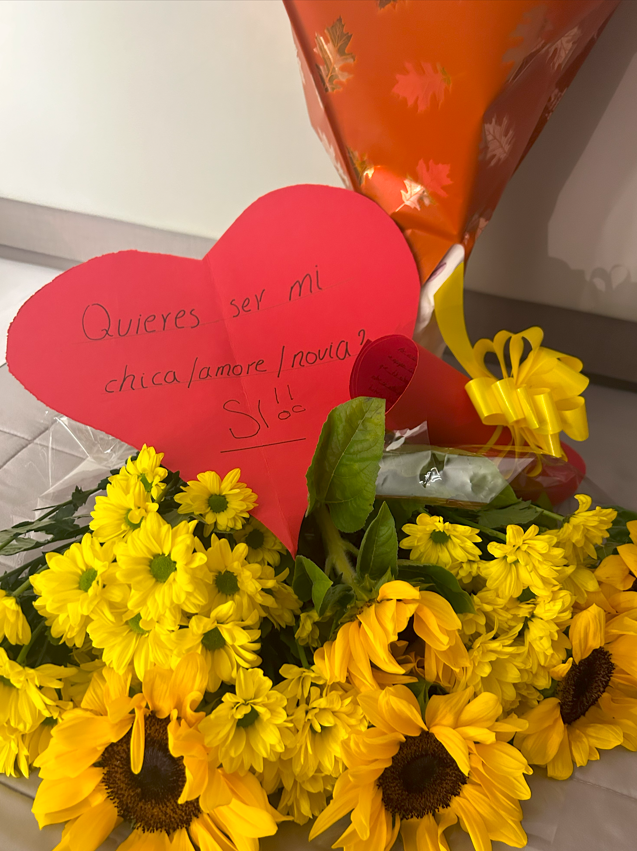 Quieres ser mi
chica/amore/novia?
SI!!